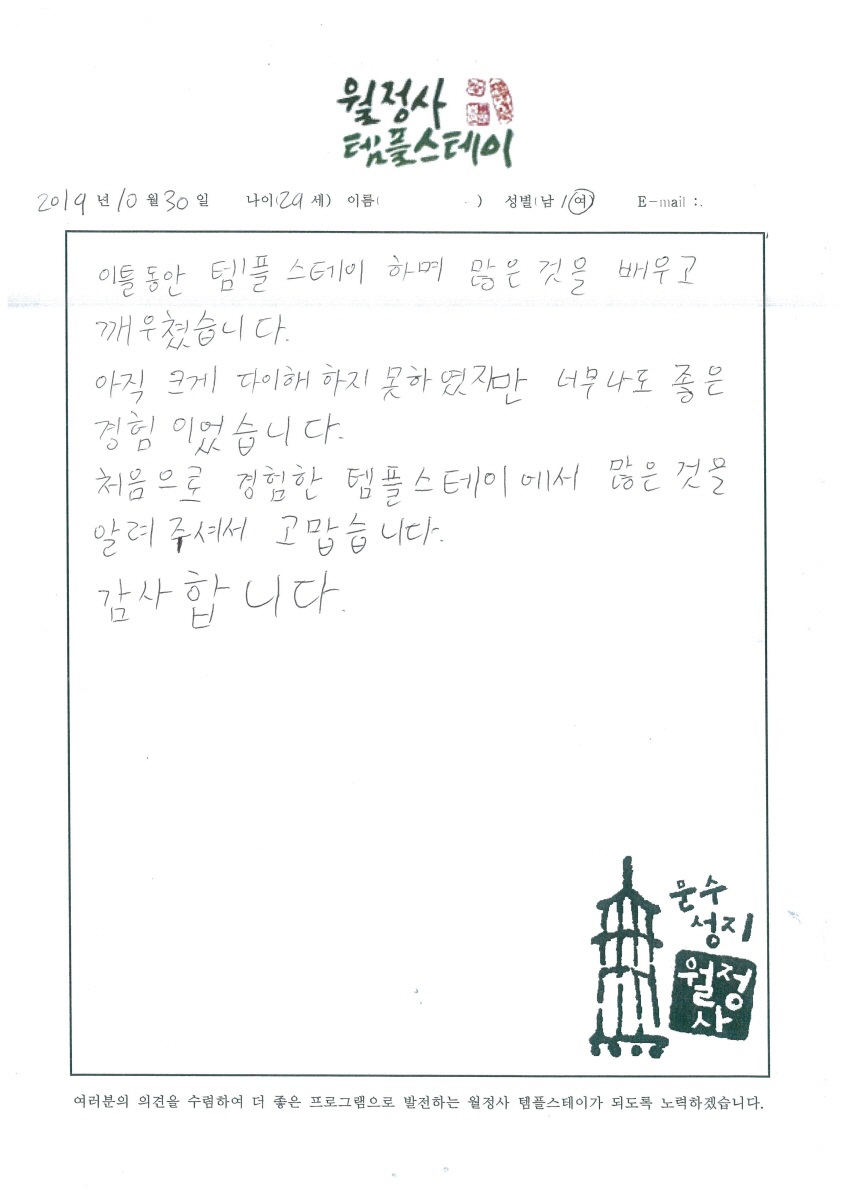 월정사
템플스테이
2019 년 10 월 30 일 나이(29 세) 이름( ) 성별(남 / 여) E-mail :.
이틀동안 템플 스테이 하며 많은 것을 배우고
깨우쳤습니다.
아직 크게 다이해 하지 못하였지만 너무나도 좋은
경험 이었습니다.
처음으로 경험한 템플스테이에서 많은 것을
알려 주셔서 고맙습니다.
감사합니다.
문수
성지
월정
사
여러분의 의견을 수렴하여 더 좋은 프로그램으로 발전하는 월정사 템플스테이가 되도록 노력하겠습니다.